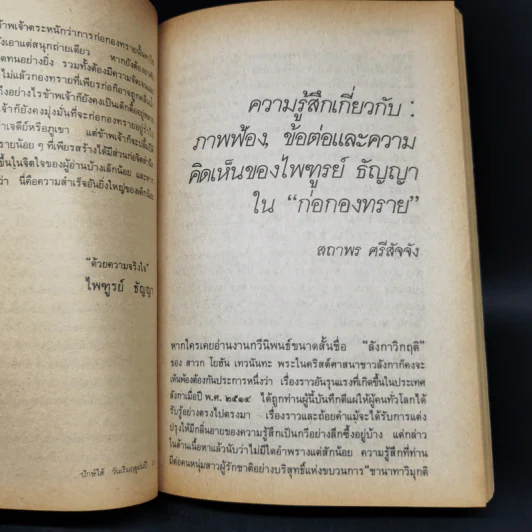 ข้าพเจ้าตระหนักว่าการก่อกองทรายนั้น
เอาแต่สนุกถ่ายเดียว
อดทนอย่างยิ่ง รวมทั้งต้องมีความจัดเจน
ไม่แล้วกองทรายที่เพียรก่อก็อาจถูก
ถึงอย่างไรข้าพเจ้าก็ยังคงเป็นเด็กดื้ออยู่
เจ้าก็ยังคงมุ่งมั่นที่จะก่อกองทรายอยู่
เจดีย์หรือภูเขา แต่ข้าพเจ้าก็จะ
ทรายน้อย ๆ ที่เพียรสร้างได้มีส่วนก่อ
ขึ้นในจิตใจของผู้อ่านบ้างเล็กน้อย
ว่า นี่คือความสำเร็จอันยิ่งใหญ่ของเด็ก
"ด้วยความจริงใจ"
ไพฑูรย์ ธัญญา
ความรู้สึกเกี่ยวกับ :
ภาพฟ้อง, ข้อต่อและความ
คิดเห็นของไพฑูรย์ ธัญญา
ใน "ก่อกองทราย"
สถาพร ศรีสัจจัง
หากใครเคยอ่านงานกวีนิพนธ์ขนาดสั้นชื่อ "ลังกาวิกฤติ"
ของ สาวก โยฮัน เทวนันทะ พระในคริสต์ศาสนาชาวลังกาก็คงจะ
เห็นพ้องต้องกันประการหนึ่งว่า เรื่องราวอันรุนแรงที่เกิดขึ้นในประเทศ
ลังกาเมื่อปี พ.ศ. ๒๕๑๔ ได้ถูกท่านผู้นี้บันทึกตีแผ่ให้ผู้คนทั่วโลกได้
รับรู้อย่างตรงไปตรงมา เรื่องราวและถ้อยคำแม้จะได้รับการแต่ง
ปรุงให้มีกลิ่นอายของความรู้สึกเป็นกวีอย่างลึกซึ้งอยู่บ้าง แต่กล่าว
ในด้านเนื้อหาแล้วนับว่าไม่มีใดอำพรางแต่สักน้อย ความรู้สึกที่ท่าน
มีต่อคนหนุ่มสาวผู้รักชาติอย่างบริสุทธิ์แห่งขบวนการ "ชานาทาวิมุกติ